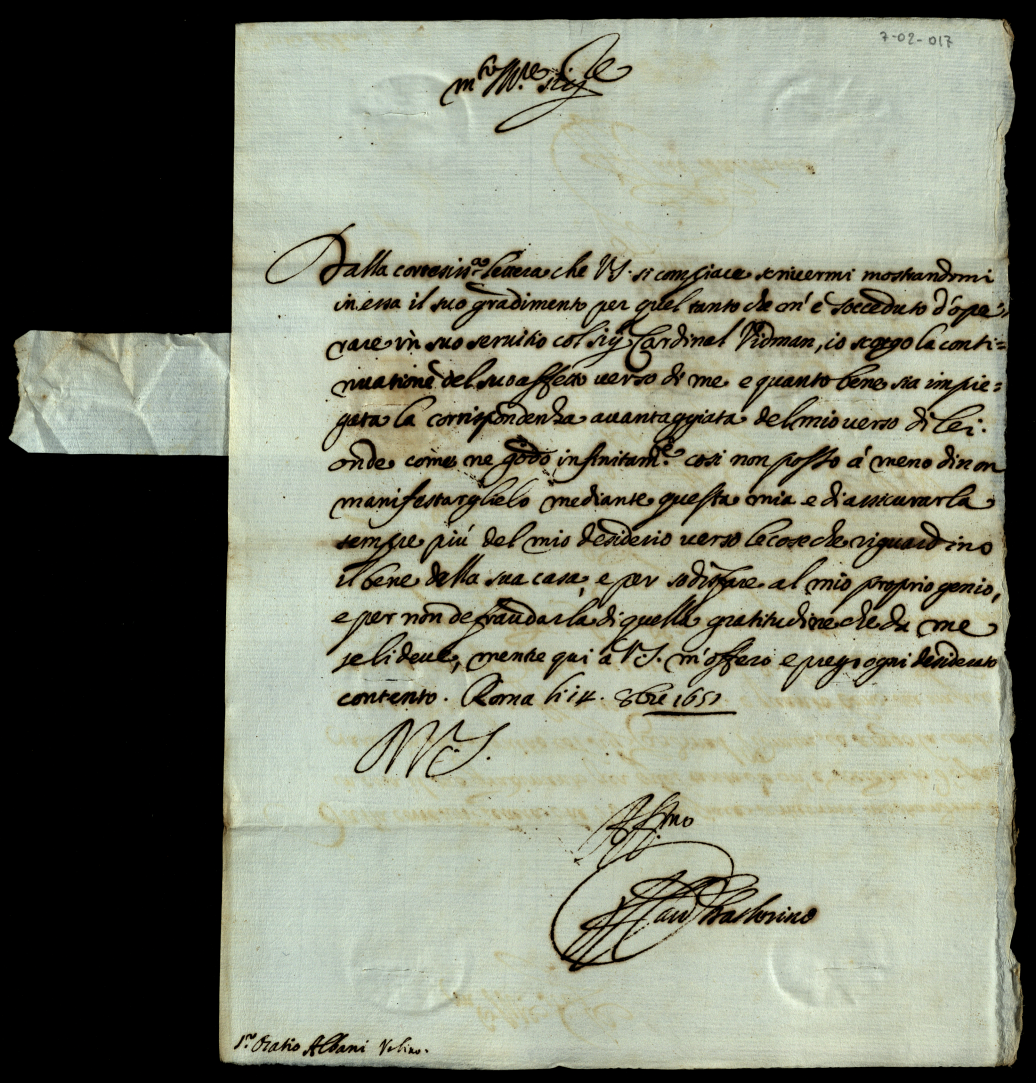 7-02-017
m.to Ill.re Sig.re
Dalla cortesiss.a lettera che V.S. si compiace scrivermi mostrandomi
in essa il suo gradimento per quel tanto che m'è socceduto d'ope=
rare in suo servitio col Sig.r Cardinal Vidman, io scorgo la conti=
nuatione del suo affetto verso di me e quanto bene sia impie=
gata la corrispondenza avantaggiata del mio verso di lei.
onde come ne godo infinitam.te cosi non posso á meno di non
manifestarglielo mediante questa mia e di assicurarla
sempre più del mio desiderio verso le cose che riguardino
il bene della sua casa, e per sodisfare al mio proprio genio,
e per non defraudarla di quella gratitudine che da me
se li deve, mentre qui á V.S. m'offero e prego ogni desiderato
contento. Roma li 14. 8bre 1651
D V.S.
Aff.mo
S.r Oratio Albani Urbino.